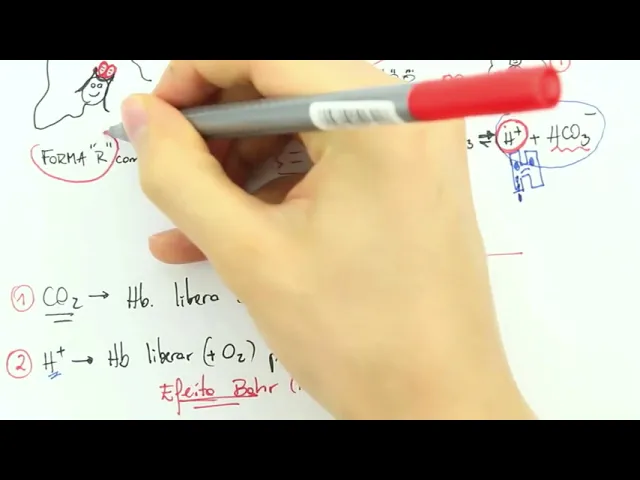 FORMA "R" com
⇌ H⁺ + HCO₃⁻
① CO₂ → Hb. libera
② H⁺ → Hb liberar (+ O₂) p
Efeito Bohr (